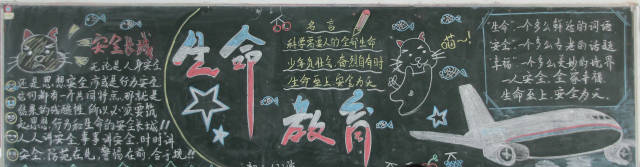 安全长城
无论是人身安全
还是思想安全亦或是行为安全
它们都有一个共同特点,那就是
生命
教育
名言
科学需要人的全部生命
少年负壮气,奋烈自有时
生命至上 安全为天
喵~!
"生命"一个多么鲜活的词语
"安全"一个多么古老的话题
"幸福"一个多么美妙的境界
一人安全,全家幸福
生命至上,安全为天
起思想、行为和生命的安全长城!!
人人讲安全,事事讲安全,时时讲
安全,防范在先、警惕在前